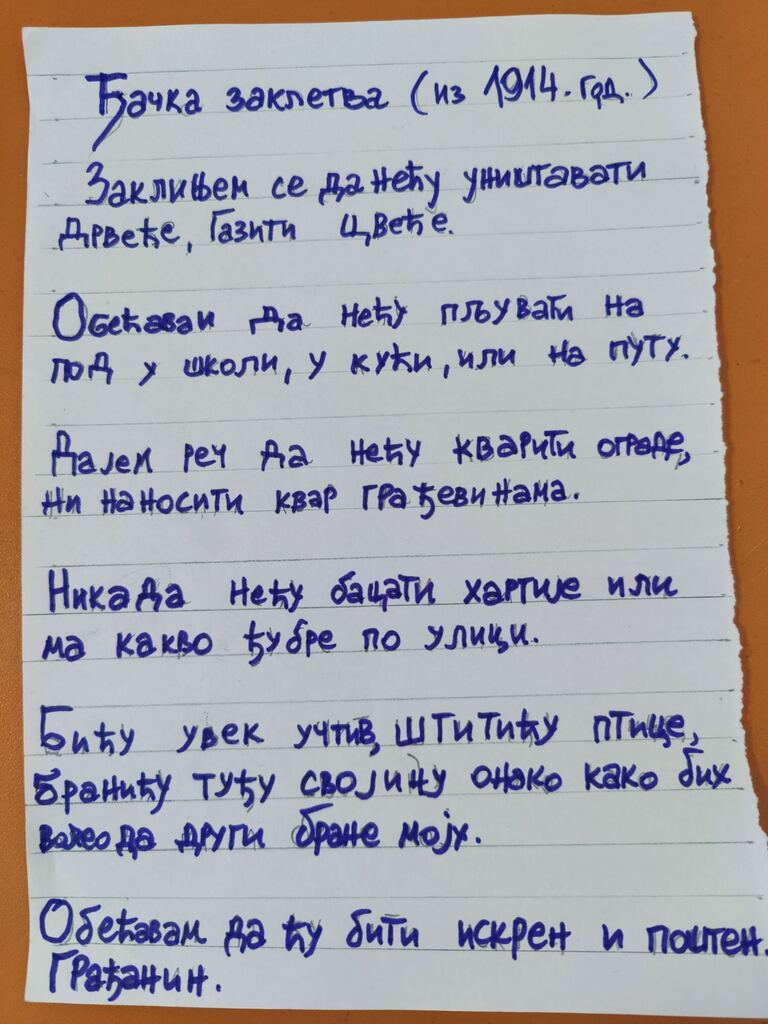 Ђачка заклетва (из 1914. год.)
Заклињем се да нећу уништавати
дрвеће, газити цвеће.
Обећавам да нећу пљувати на
под у школи, у кући, или на путу.
Дајем реч да нећу кварити ограде,
ни наносити квар грађевинама.
Никада нећу бацати хартије или
ма какво ђубре по улици.
Бићу увек учтив, штитићу птице,
бранићу туђу својину онако како бих
волео да други бране моју.
Обећавам да ћу бити искрен и поштен.
Грађанин.